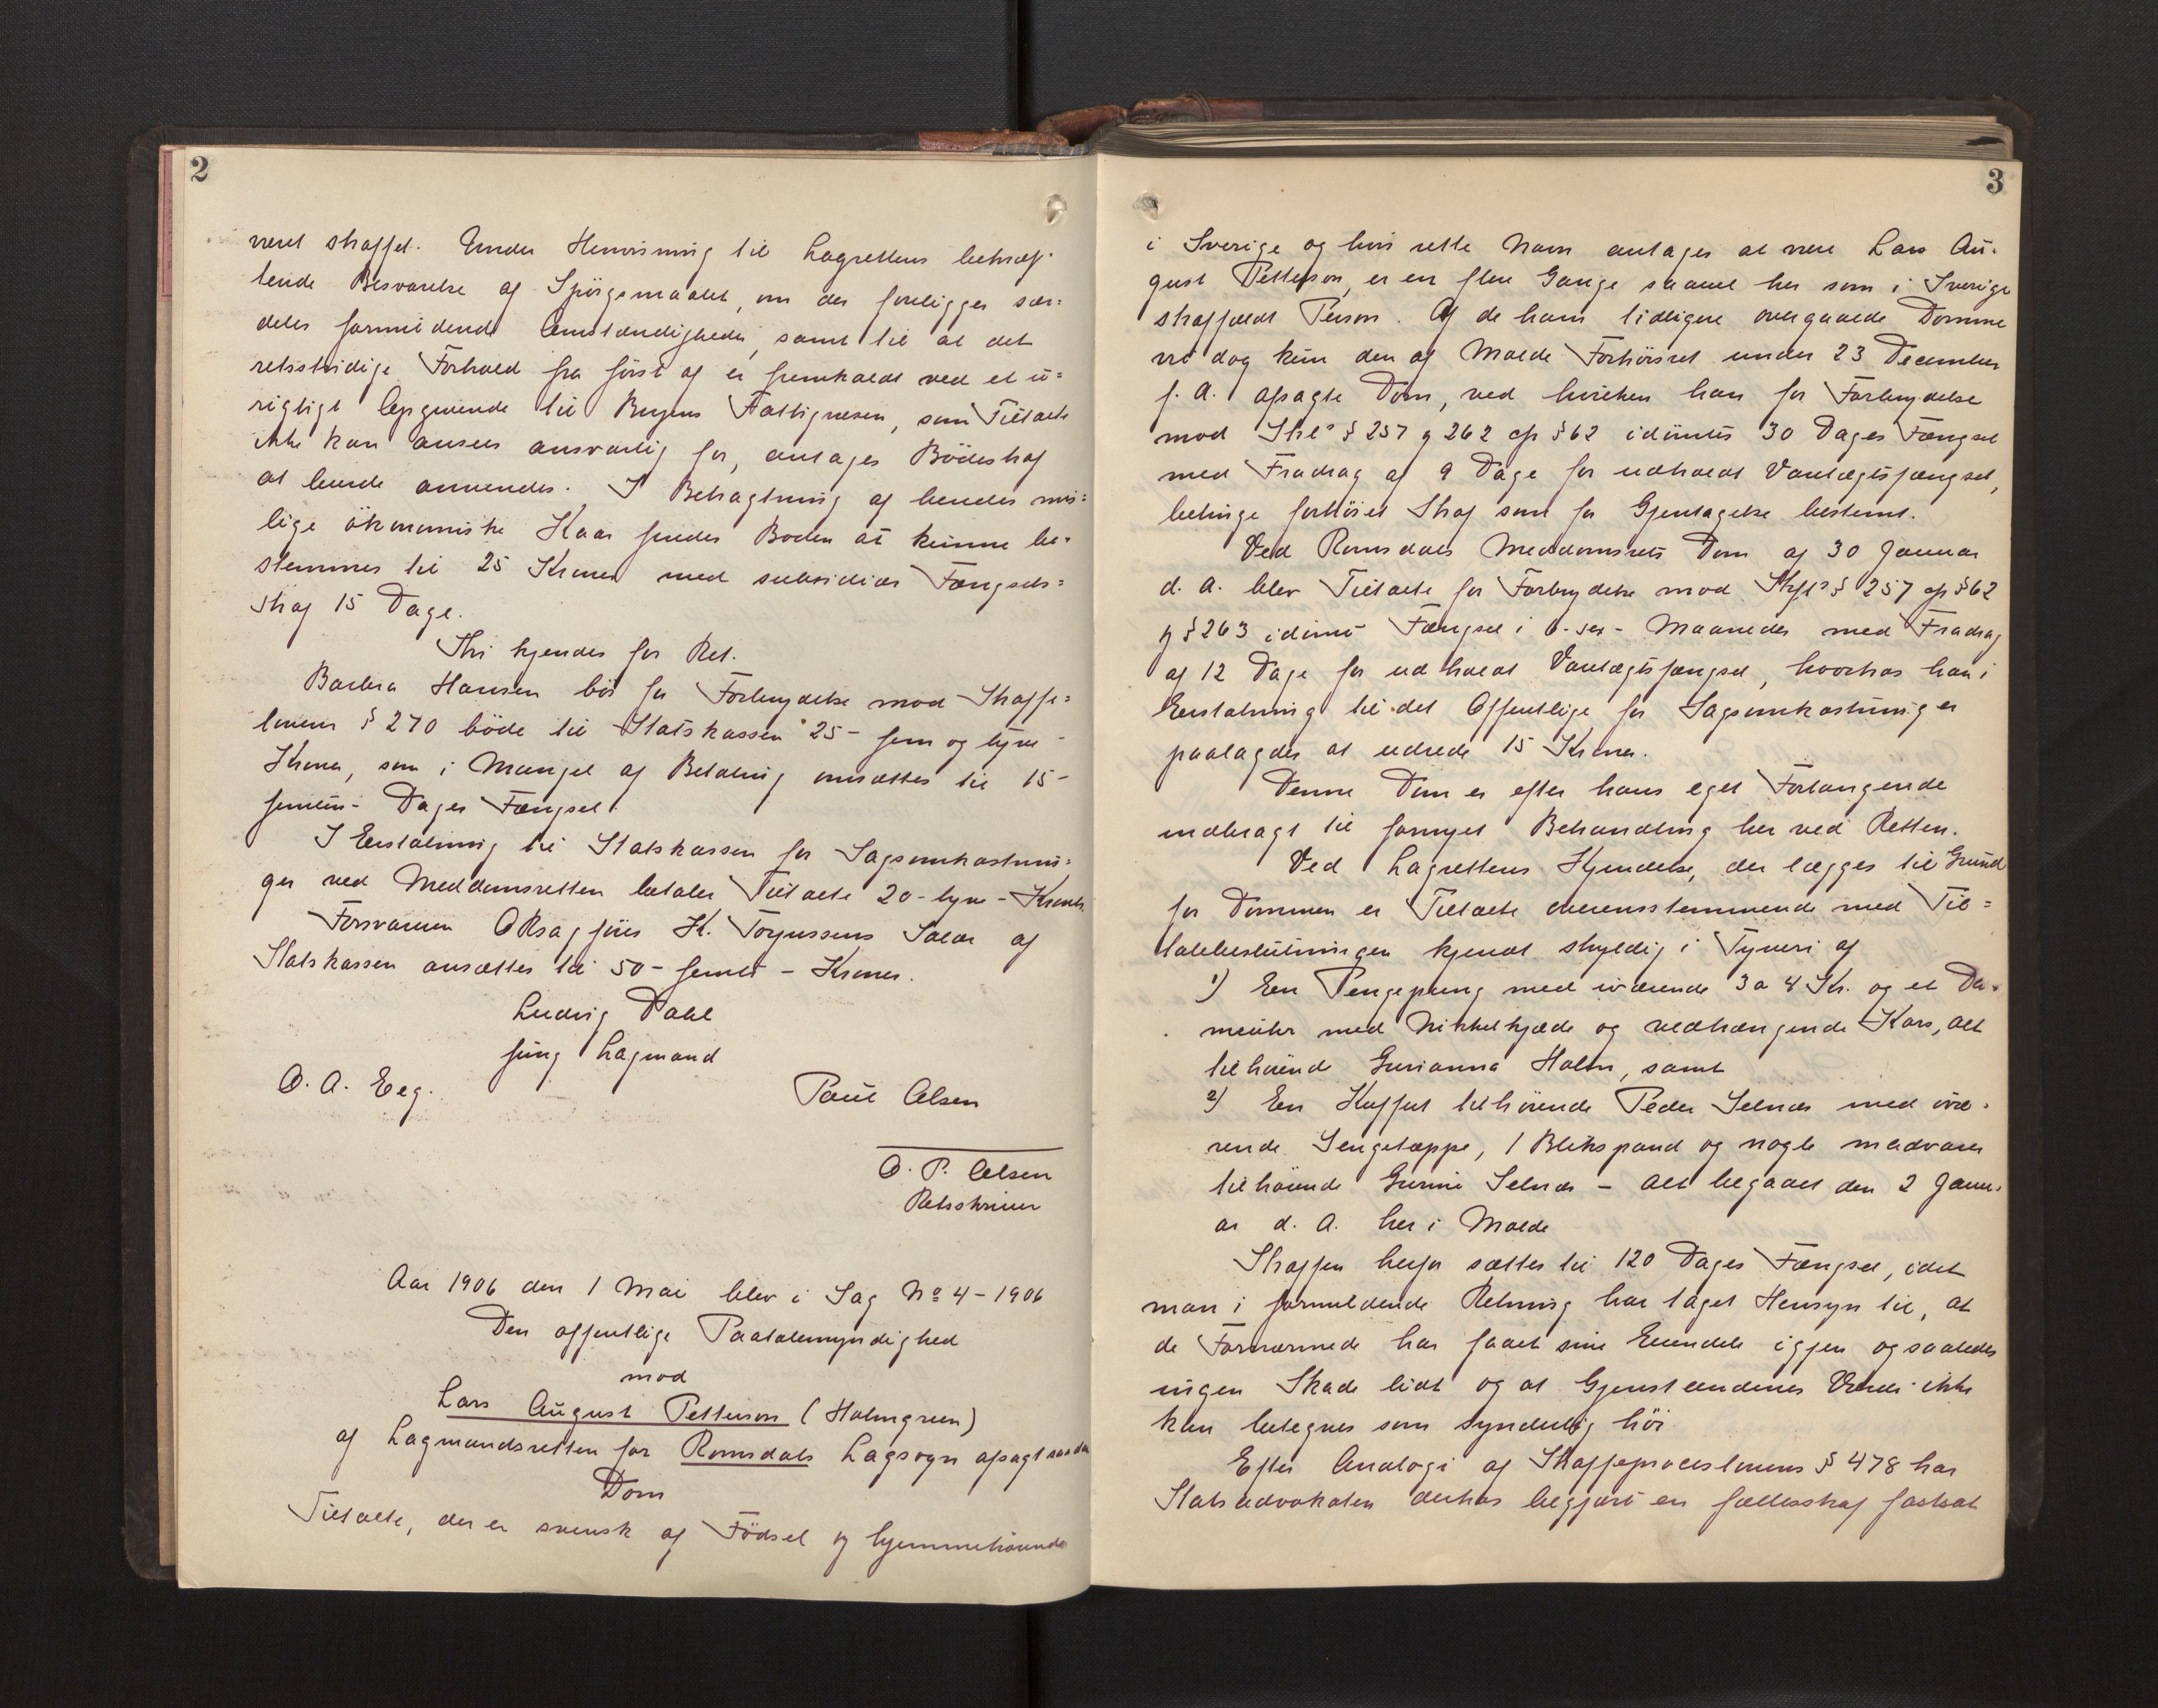 2
været straffet. Under Henvisning til Lagrettens bekræf-
tende Besvarelse af Spörgsmaalet, om der foreligger sær=
deles formildende Omstændigheder, samt til at det
retsstridige Forhold fra först af er fremkaldt ved et u=
rigtigt Opgivende til Byens Fattigvæsen, som Tiltalte
ikke kan ansees ansvarlig for, antages Bödestraf
at burde anvendes. I Betragtning af hendes mis=
lige ökonomiske Kaar findes Boden at kunne be=
stemmes til 25 Kroner med subsidiær Fængsels=
straf 15 Dage.
Thi kjendes for Ret.
Barbra Hansen bör for Forbrydelse mod Straffe=
lovens § 270 böde til Statskassen 25 - fem og tyve -
Kroner, som i Mangel af Betaling omsættes til 15 -
femten - Dages Fængsel.
I Erstatning til Statskassen for Sagsomkostnin=
ger ved Meddomsretten betaler Tiltalte 20 - tyve - Kroner.
Forsvareren ORsagförer K. Torjussens Salær af
Statskassen ansættes til 50 - femti - Kroner.
Ludvig Dahl
fung Lagmand
O. A. Eeg.
Paul Olsen
O. P. Olsen
Retsskriver
Aar 1906 den 1 Mai blev i Sag No 4 - 1906
Den offentlige Paatalemyndighed
mod
Lars August Petterson (Holmgreen)
af Lagmandsretten for Romsdals Lagsogn afsagt saadan
Dom
Tiltalte, der er svensk af Födsel og hjemmehörende
3
i Sverige og hvis rette Navn antages at være Lars Au-
gust Petterson, er en flere Gange saavel her som i Sverige
straffældt Person. Af de ham tidligere overgaaede Domme
vil dog kun den af Molde Forhörsret under 23 December
f. A. afsagte Dom, ved hvilken han for Forbrydelse
mod Strl's § 257 og 262 cfr § 62 idömtes 30 Dages Fængsel
med Fradrag af 9 Dage for udholdt Varetægtsfængsel,
betinge forhöiet Straf som for Gjentagelse bestemt.
Ved Romsdals Meddomsrets Dom af 30 Januar
d. A. blev Tiltalte for Forbrydelse mod Strfl's § 257 cfr § 62
og § 263 idömt Fængsel i 6 - sex - Maaneder med Fradrag
af 12 Dage for udholdt Varetægtsfængsel, hvorhos han i
Erstatning til det Offentlige for Sagsomkostninger
paalagdes at udrede 15 Kroner.
Denne Dom er efter hans eget Forlangende
indbragt til fornyet Behandling her ved Retten.
Ved Lagrettens Kjendelse, der lægges til Grund
for Dommen er Tiltalte overensstemmende med Til=
talebeslutningen kjendt skyldig i Tyveri af
1) Een Pengepung med iværende 3 a 4 Kr. og et Da-
meuhr med Nikkelkjæde og vedhængende Kors, alt
tilhörende Gurianna Holm, samt
2) Een Kuffert tilhörende Peder Selnæs med ivæ-
rende Sengetæppe, 1 Blikspand og nogle Madvarer
tilhörende Gurine Selnæs - alt begaaet den 2 Janu-
ar d. A. her i Molde
Straffen herfor sættes til 120 Dages Fængsel, idet
man i formildende Retning har taget Hensyn til, at
de Fornærmede har faaet sine Eiendele igjen og saaledes
ingen Skade lidt og at Gjenstandenes Værdi ikke
kan betegnes som synderlig höi.
Efter Analogi af Straffeproceslovens § 478 har
Statsadvokaten derhos begjært en fællesstraf fastsat